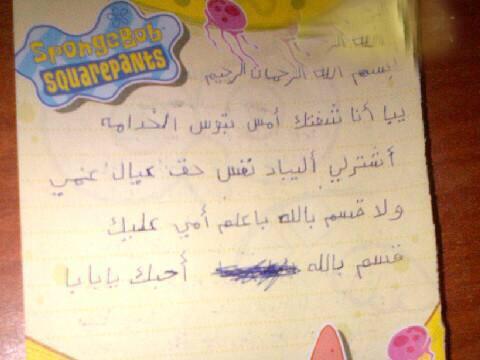 SpongeBob
SQUAREPANTS
بسم الله الرحمان الرحيم
يبا أنا شفتك أمس تبوس الخدامه
أشترلي أليباد نفس حق عيال عمي
ولا قسم بالله باعلم أمي عليك
قسم بالله أحبك يابابا